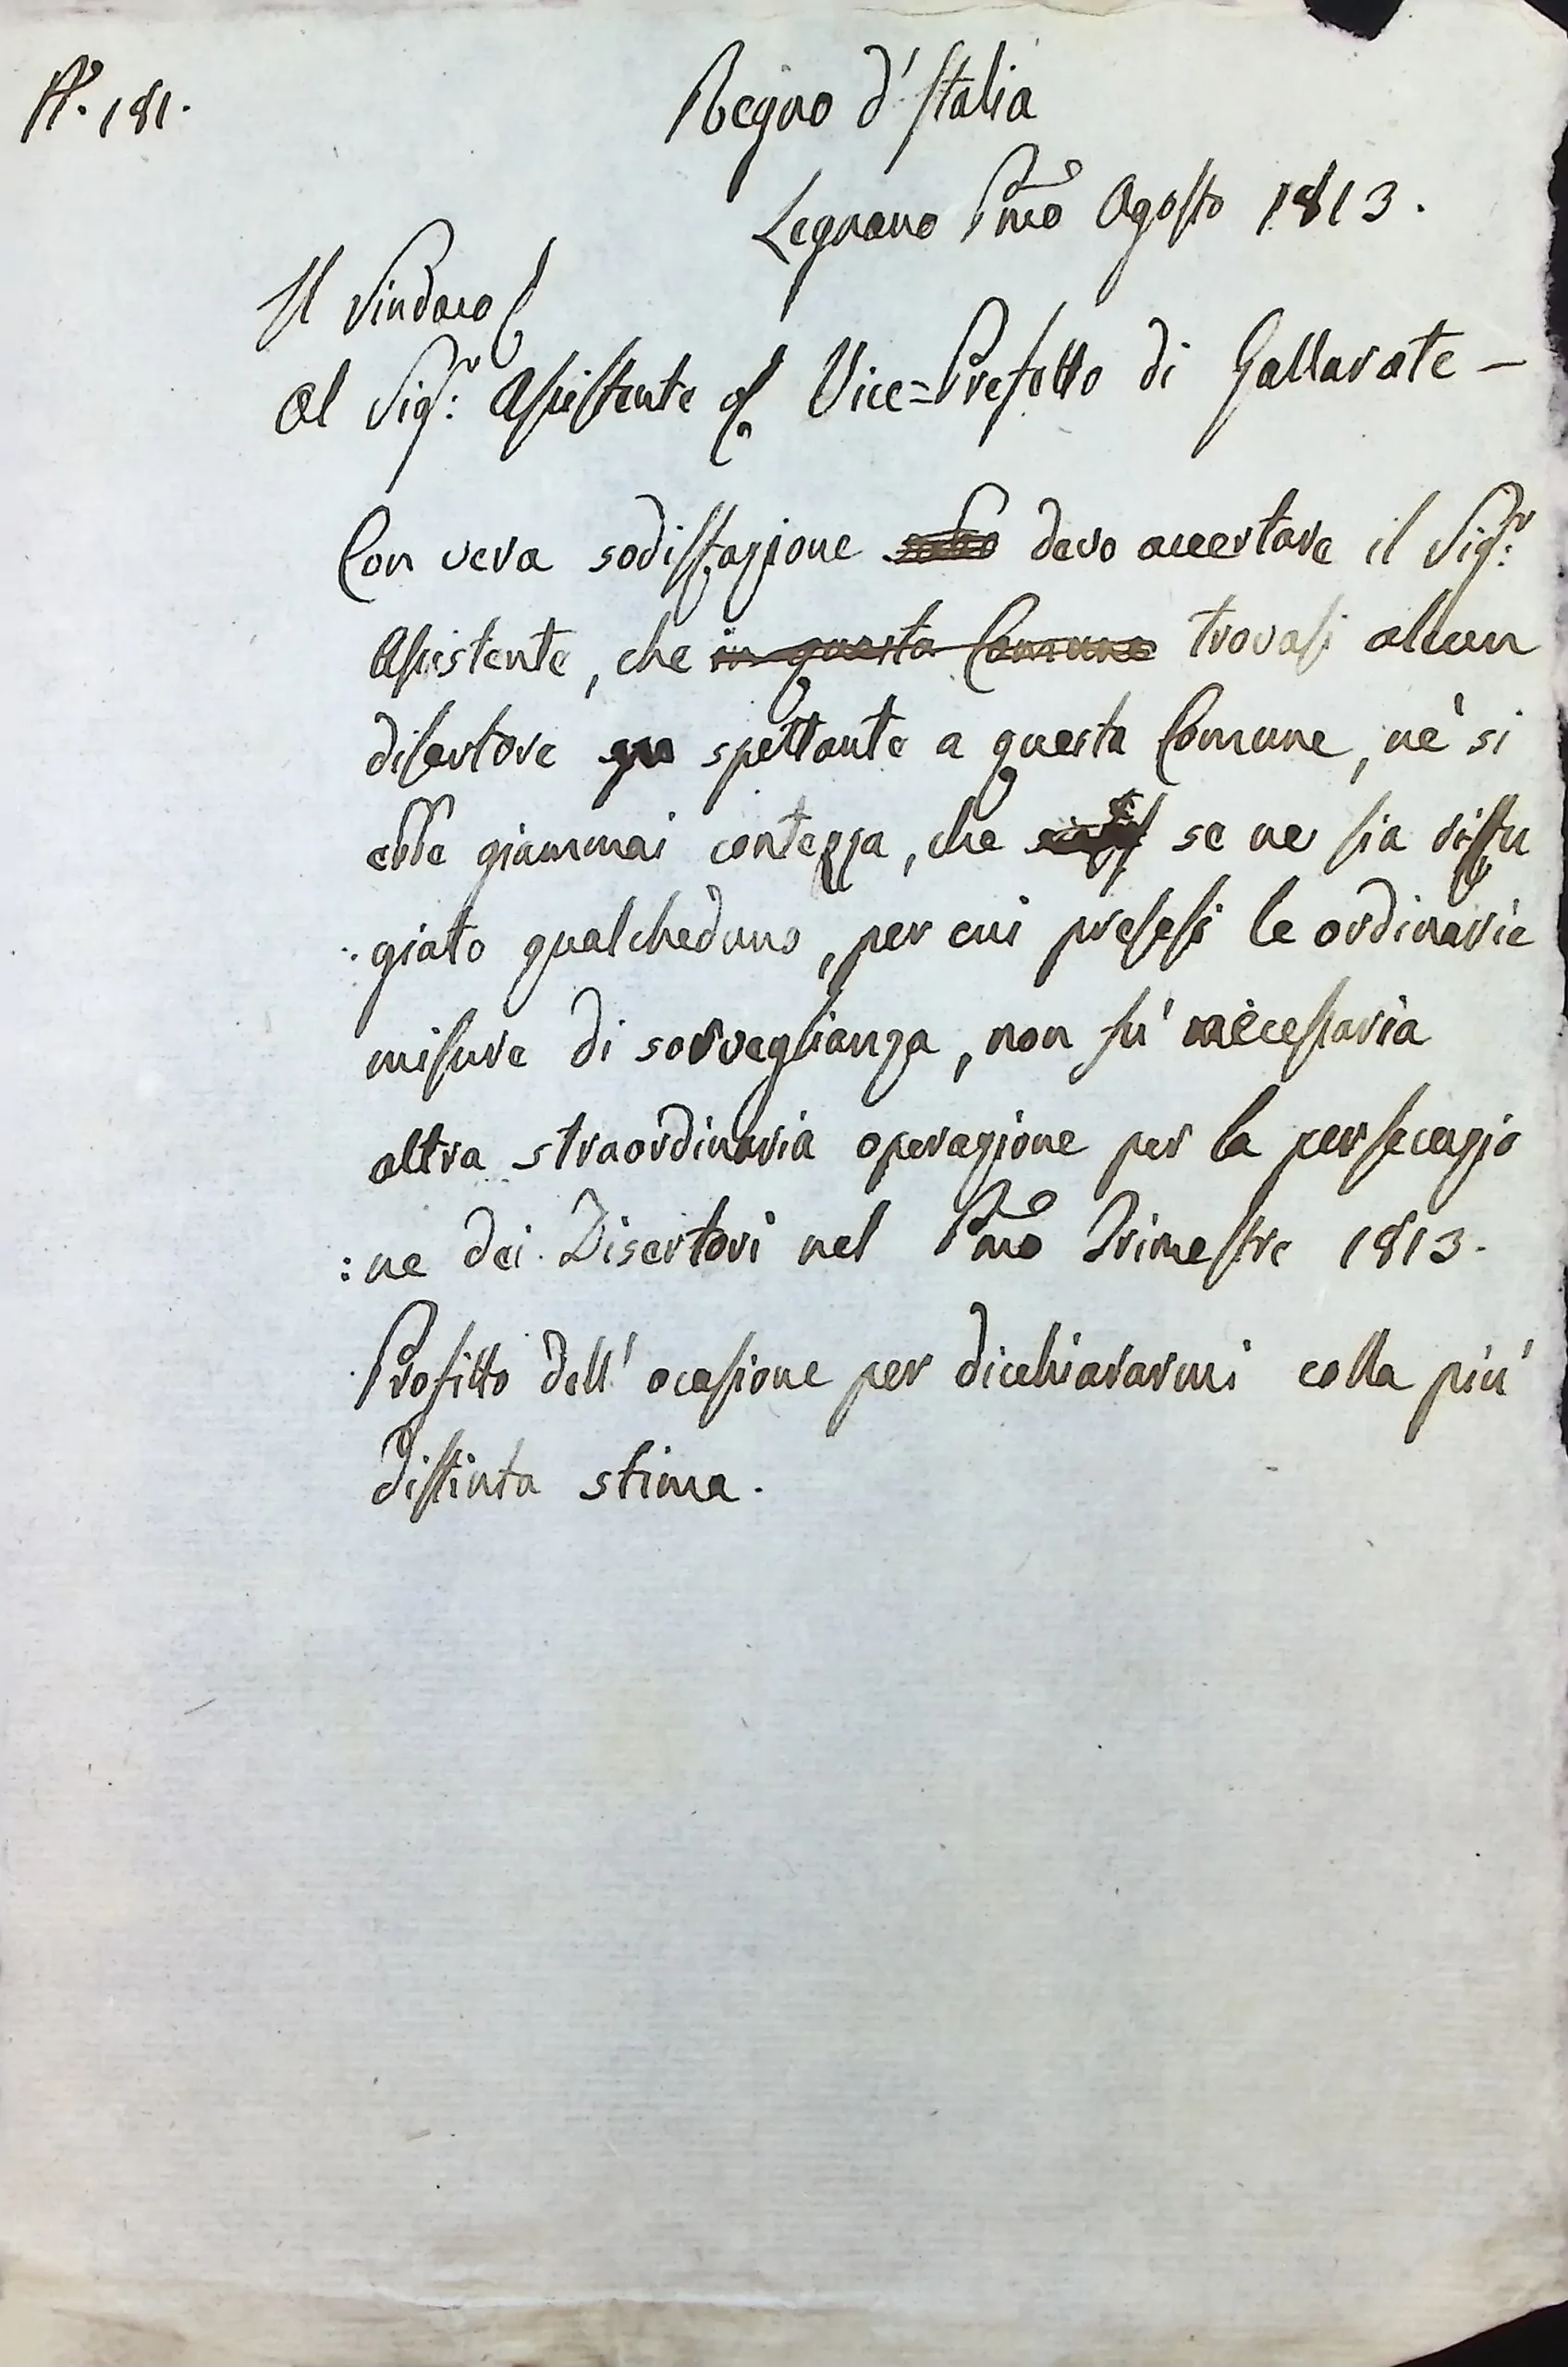 N.° 181.
Regno d'Italia
Legnano Pmo Agosto 1813.
Il Sindaco
Al Sigr: Assistente al Vice=Prefetto di Gallarate –
Con vera sodisfazione devo accertare il Sigr:
Assistente, che in questa Comune trovasi alcun
disertore qu spettante a questa Comune, nè si
ebbe giammai contezza, che se ne sia riffu
giato qualcheduno, per cui presesi le ordinarie
misure di sorveglianza, non fù necessaria
altra straordinaria operazione per la persecuzio
:ne dei Disertori nel Pmo Trimestre 1813.
Profitto dell'ocasione per dicchiararmi colla più
distinta stima.